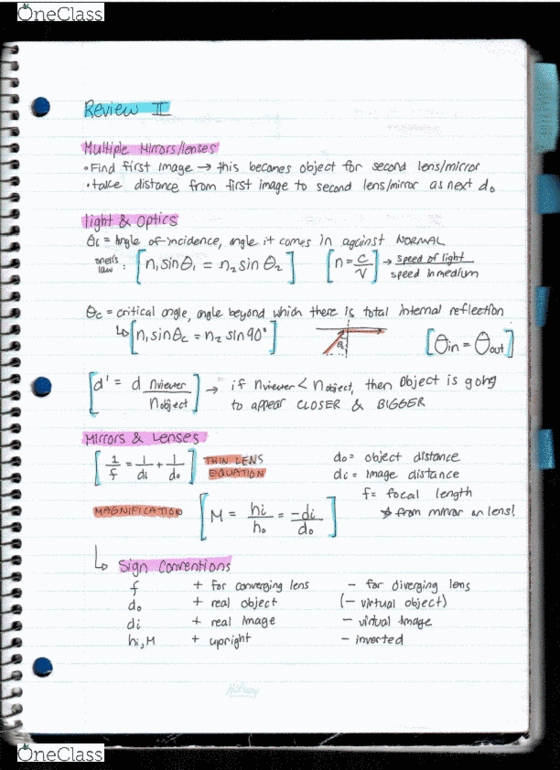 OneClass
Review II
Multiple Mirrors/lenses
• Find first image → this becomes object for second lens/mirror
• take distance from first image to second lens/mirror as next do
light & Optics
θi = Angle of incidence, angle it comes in against NORMAL
snell's law: [n₁sinθ₁ = n₂sinθ₂] [n = c/v] → speed of light / speed in medium
θc = critical angle, angle beyond which there is total internal reflection
↳ [n₁sinθc = n₂sin90°] θc [θin = θout]
[d' = d nviewer/nobject] → if nviewer < nobject, then object is going
to appear CLOSER & BIGGER
Mirrors & Lenses
[1/f = 1/di + 1/do] THIN LENS EQUATION
do = object distance
di = image distance
f = focal length
from mirror or lens!
MAGNIFICATION [M = hi/ho = -di/do]
↳ Sign Conventions
f + for converging lens - for diverging lens
do + real object (- virtual object)
di + real image - virtual image
hi, M + upright - inverted
OneClass